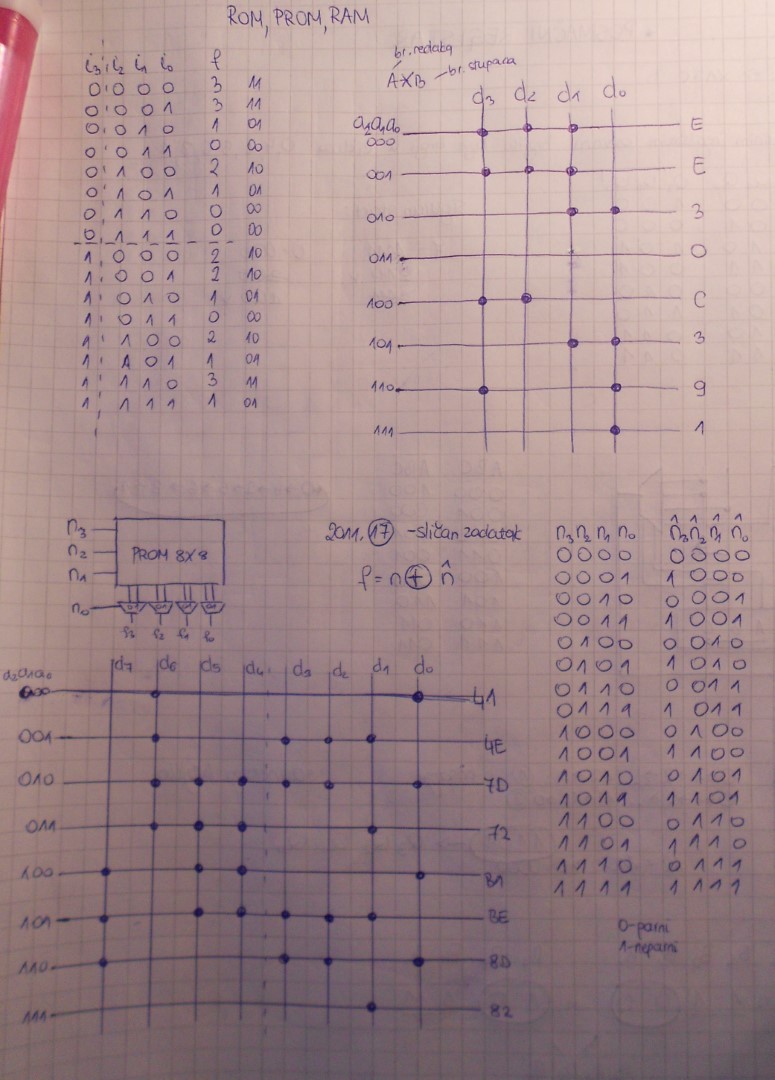 ROM, PROM, RAM
i3 i2 i1 i0 f
0 0 0 0 3 11
0 0 0 1 3 11
0 0 1 0 1 01
0 0 1 1 0 00
0 1 0 0 2 10
0 1 0 1 1 01
0 1 1 0 0 00
0 1 1 1 0 00
1 0 0 0 2 10
1 0 0 1 2 10
1 0 1 0 1 01
1 0 1 1 0 00
1 1 0 0 2 10
1 1 0 1 1 01
1 1 1 0 3 11
1 1 1 1 1 01
br. redaka
A X B br. stupaca
d3 d2 d1 d0
a2a1a0
000 E
001 E
010 3
011 0
100 C
101 3
110 9
111 1
n3
n2
n1
PROM 8X8
n0
f3 f2 f1 f0
2011. 17 - sličan zadatak
f = n + n̂
n3 n2 n1 n0 n̂3 n̂2 n̂1 n̂0
0000 0000
0001 1000
0010 0001
0011 1001
0100 0010
0101 1010
0110 0011
0111 1011
1000 0100
1001 1100
1010 0101
1011 1101
1100 0110
1101 1110
1110 0111
1111 1111
0-parni
1-neparni
a2a1a0 d7 d6 d5 d4 d3 d2 d1 d0
000 41
001 4E
010 7D
011 72
100 B1
101 BE
110 8D
111 82